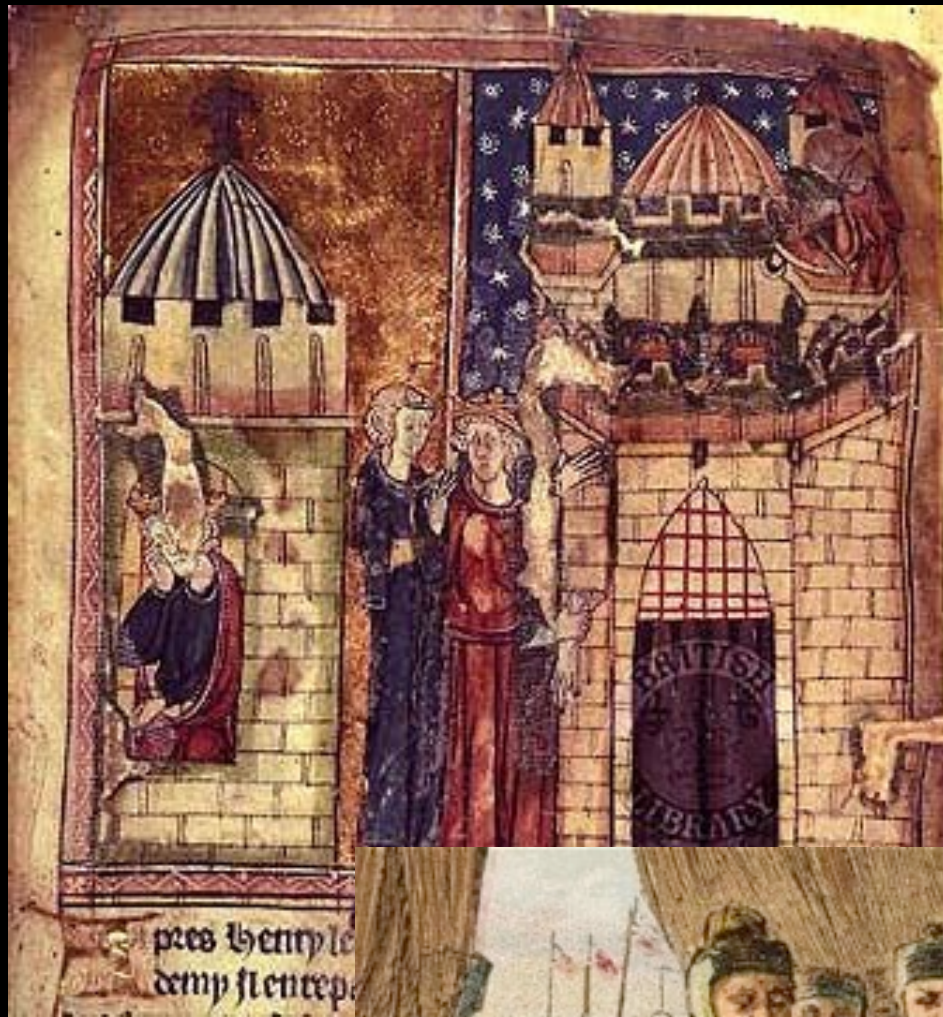 BRITISH
LIBRARY
pres Henry le
demy si entrep